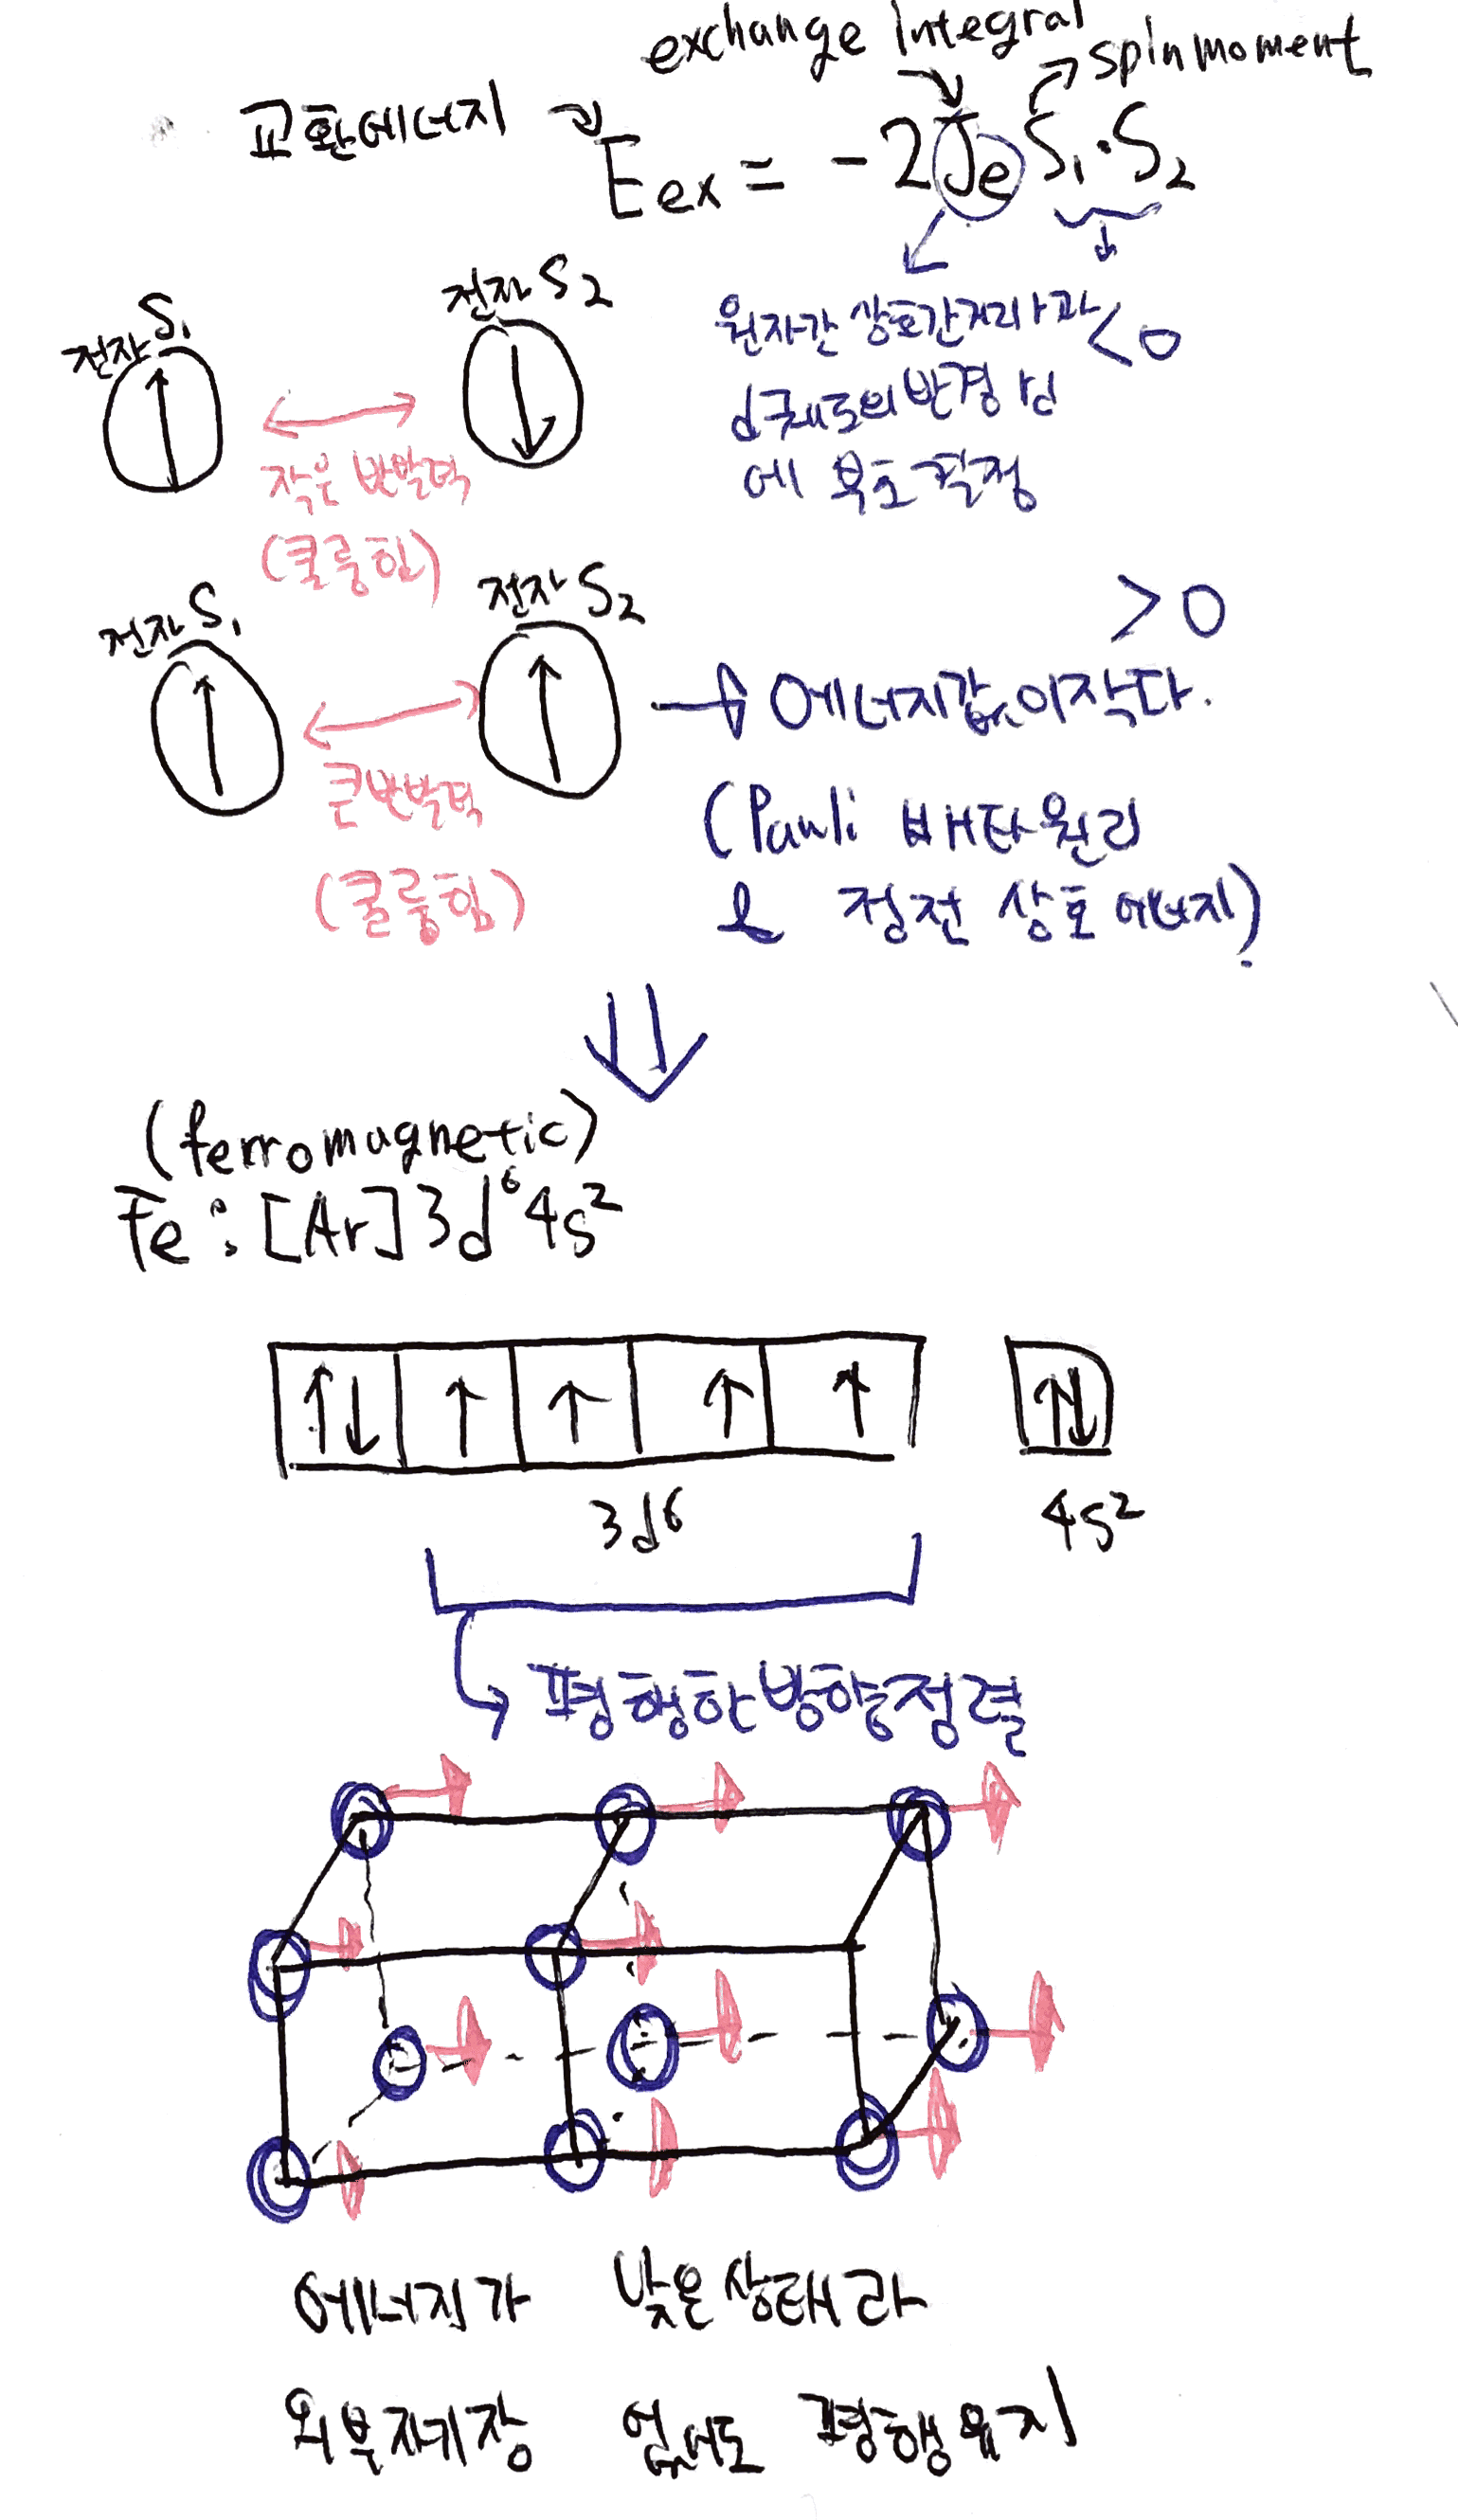 exchange Integral
spin moment
교환에너지
Eex = -2Je S₁·S₂
전자 S₁
전자 S₂
원자간 상호간거리와 < 0
d궤도의 반경
에 의존
작은 반발력
(쿨롱힘)
전자 S₁
전자 S₂
> 0
에너지값이작다.
큰반발력
(Pauli 배타원리
(쿨롱힘)
& 정전 상호 에너지)
(ferromagnetic)
Fe : [Ar]3d⁶4s²
↑↓ ↑ ↑ ↑ ↑ ↑↓
3d⁶ 4s²
평행한방향정렬
에너지가 낮은상태라
외부자기장 없어도 평행유지